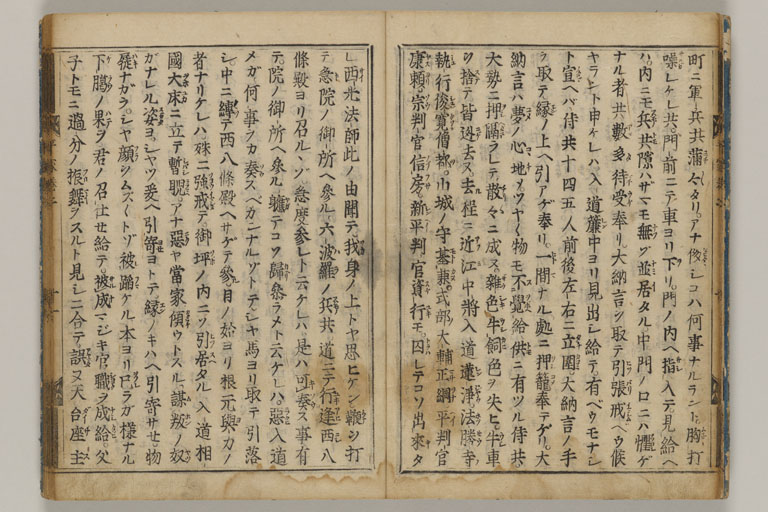 町ニ軍兵共蒲々タリ。アナ夥シコハ何事ナルラント胸打
噪ケレ共。門前ニテ車ヨリ下リ。門ノ内ヘ指入テ見給ヘ
ハ。内ニモ兵共隙ハザマモ無ゾ並居タル。中門ノ口ニハ懼ゲ
ナル者共數多待受奉リ大納言ヲ取テ引張。戒ベウ候
ヤラント申ケレハ。入道簾中ヨリ見出シ給テ有ベウモナシ
ト宣ヘバ侍共十四五人前後左右ニ立圍大納言ノ手
ヲ取テ縁ノ上ヘ引アゲ奉リ。一間ナル処ニ押籠奉テゲリ。大
納言ハ夢ノ心地メツヤ〳〵物モ不覺給供ニ有ツル侍共
大勢ニ押隔ラレテ散々ニ成ヌ雜色牛飼色ヲ失ヒ牛車
ヲ捨テ皆迯去ヌ去程ニ近江中將入道蓮淨法勝寺
執行俊寛僧都。山城ノ守基兼。式部大輔正綱平判官
康頼。宗判官信房。新平判官資行モ。囚レテコソ出來タ
レ西光法師此ノ由聞テ我身ノ上トヤ思ヒケン鞭ヲ打
テ急院ノ御所ヘ參ル。六波羅ノ兵共道ニテ行逢西八
條殿ヨリ召ルヽゾ急度參レト云ケレハ。是ハ可奏事有
テ院ノ御所ヘ參ル。軈テコソ歸參ラメト云ケレハ惡入道
メガ何事ヲカ奏スベカンナルゾトテシヤ馬ヨリ取テ引落
シ中ニ縛テ西八條殿ヘサゲテ參。日ノ始ヨリ根元與カノ
者ナリケレハ殊ニ強戒テ御坪ノ内ニソ引居タル入道相
國大床ニ立テ暫睨。アナ惡ヤ當家傾ウトスル謀叛ノ奴
ガナレル姿ヨ。シヤツ爰ヘ引寄ヨトテ縁ノキハヘ引寄サセ。物
履ナガラ。シヤ顔ヲムズ〳〵トゾ被蹈ケル本ヨリ己ラガ樣ナル
下臈ノ果ヲ君ノ召仕セ給テ。被成マジキ官職ヲ成給。父
子トモニ過分ノ振舞ヲスルト見シニ合テ誤ヌ天台座主